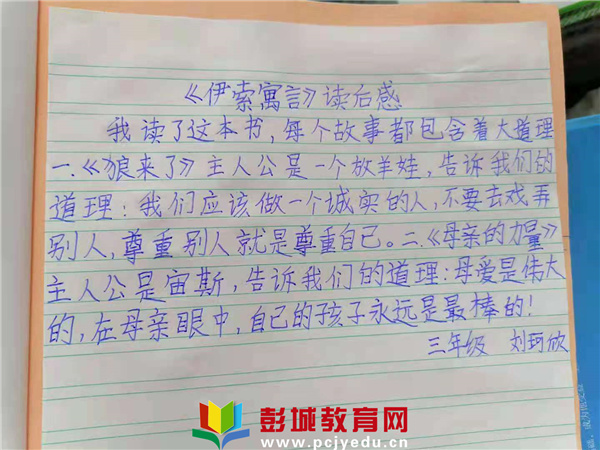 《伊索寓言》读后感
我读了这本书，每个故事都包含着大道理
一.《狼来了》主人公是一个放羊娃，告诉我们的
道理：我们应该做一个城实的人，不要去戏弄
别人，尊重别人就是尊重自己。二.《母亲的力量》
主人公是宙斯，告诉我们的道理：母爱是伟大
的，在母亲眼中，自己的孩子永远是最棒的！
三年级 刘珂欣
彭城教育网
www.pcjyedu.cn